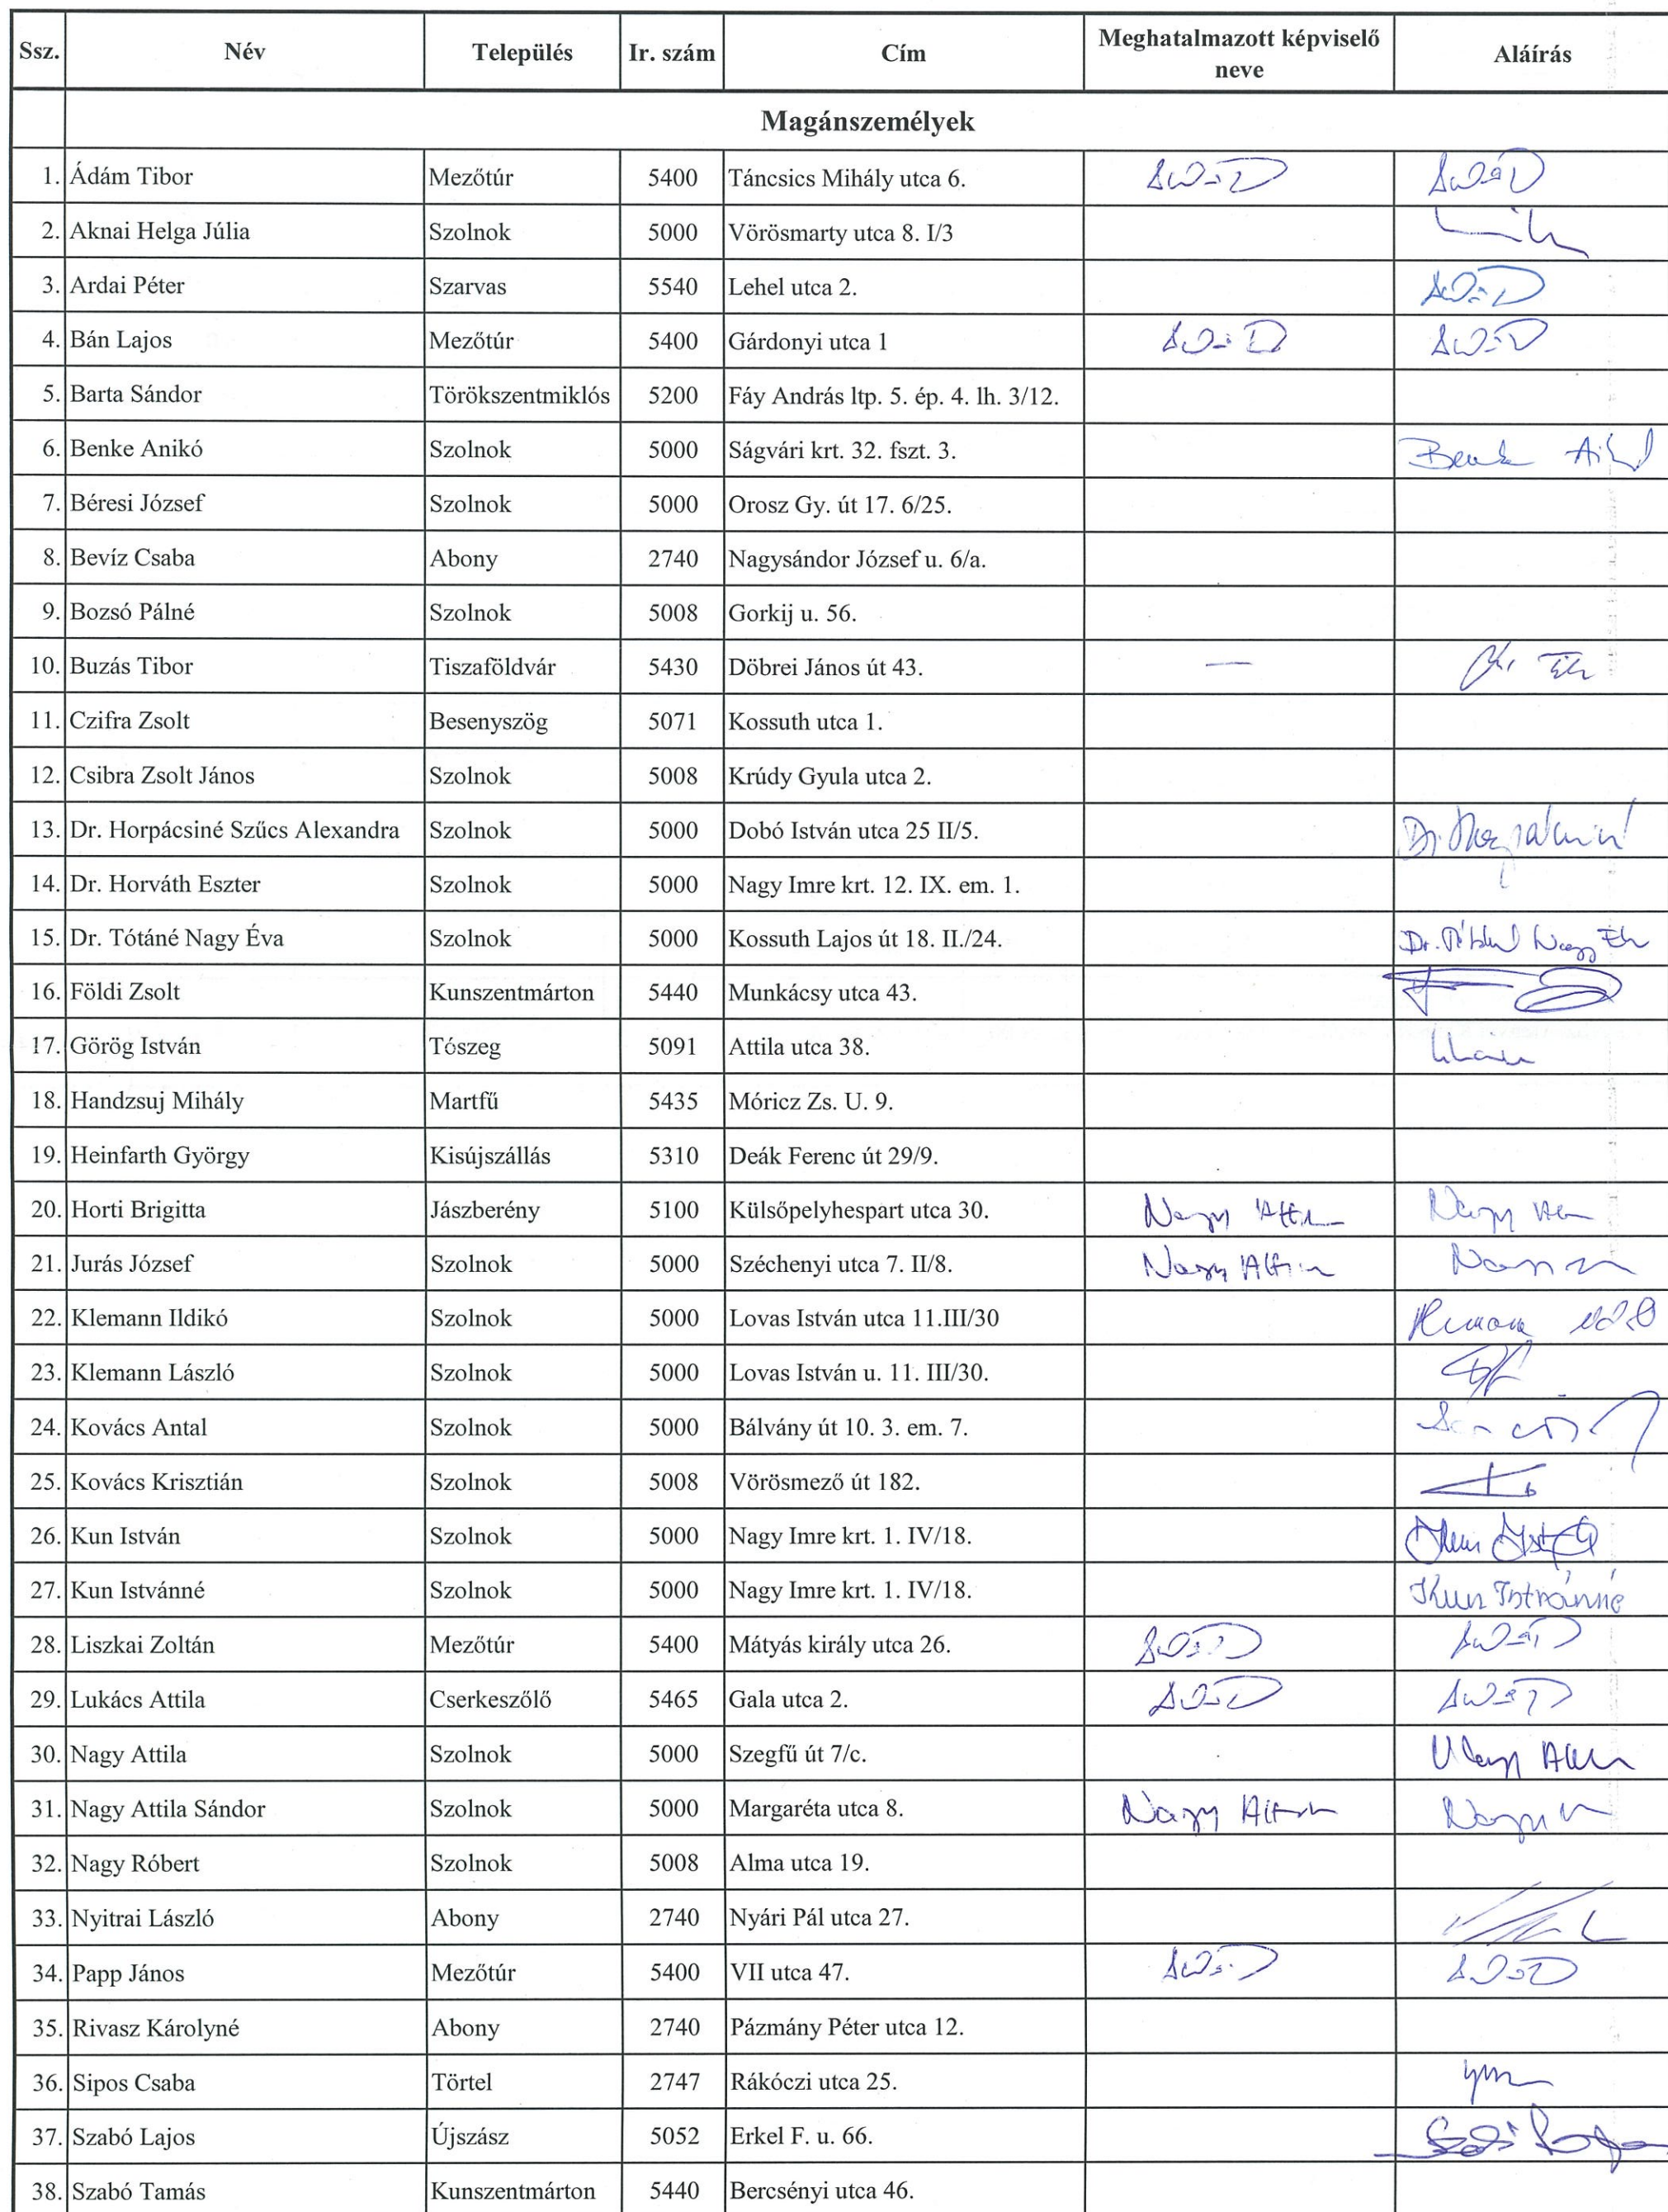 Ssz. Név Település Ir. szám Cím Meghatalmazott képviselő neve Aláírás
Magánszemélyek
1. Ádám Tibor Mezőtúr 5400 Táncsics Mihály utca 6.
2. Aknai Helga Júlia Szolnok 5000 Vörösmarty utca 8. I/3
3. Ardai Péter Szarvas 5540 Lehel utca 2.
4. Bán Lajos Mezőtúr 5400 Gárdonyi utca 1
5. Barta Sándor Törökszentmiklós 5200 Fáy András ltp. 5. ép. 4. lh. 3/12.
6. Benke Anikó Szolnok 5000 Ságvári krt. 32. fszt. 3.
7. Béresi József Szolnok 5000 Orosz Gy. út 17. 6/25.
8. Bevíz Csaba Abony 2740 Nagysándor József u. 6/a.
9. Bozsó Pálné Szolnok 5008 Gorkij u. 56.
10. Buzás Tibor Tiszaföldvár 5430 Döbrei János út 43. —
11. Czifra Zsolt Besenyszög 5071 Kossuth utca 1.
12. Csibra Zsolt János Szolnok 5008 Krúdy Gyula utca 2.
13. Dr. Horpácsiné Szűcs Alexandra Szolnok 5000 Dobó István utca 25 II/5.
14. Dr. Horváth Eszter Szolnok 5000 Nagy Imre krt. 12. IX. em. 1.
15. Dr. Tótáné Nagy Éva Szolnok 5000 Kossuth Lajos út 18. II./24.
16. Földi Zsolt Kunszentmárton 5440 Munkácsy utca 43.
17. Görög István Tószeg 5091 Attila utca 38.
18. Handzsuj Mihály Martfű 5435 Móricz Zs. U. 9.
19. Heinfarth György Kisújszállás 5310 Deák Ferenc út 29/9.
20. Horti Brigitta Jászberény 5100 Külsőpelyhespart utca 30. Nagy Attila Nagy
21. Jurás József Szolnok 5000 Széchenyi utca 7. II/8. Nagy Attila
22. Klemann Ildikó Szolnok 5000 Lovas István utca 11.III/30
23. Klemann László Szolnok 5000 Lovas István u. 11. III/30.
24. Kovács Antal Szolnok 5000 Bálvány út 10. 3. em. 7.
25. Kovács Krisztián Szolnok 5008 Vörösmező út 182.
26. Kun István Szolnok 5000 Nagy Imre krt. 1. IV/18. Kun István
27. Kun Istvánné Szolnok 5000 Nagy Imre krt. 1. IV/18. Kun Istvánné
28. Liszkai Zoltán Mezőtúr 5400 Mátyás király utca 26.
29. Lukács Attila Cserkeszőlő 5465 Gala utca 2.
30. Nagy Attila Szolnok 5000 Szegfű út 7/c. Nagy Attila
31. Nagy Attila Sándor Szolnok 5000 Margaréta utca 8. Nagy Attila Nagy
32. Nagy Róbert Szolnok 5008 Alma utca 19.
33. Nyitrai László Abony 2740 Nyári Pál utca 27.
34. Papp János Mezőtúr 5400 VII utca 47.
35. Rivasz Károlyné Abony 2740 Pázmány Péter utca 12.
36. Sipos Csaba Törtel 2747 Rákóczi utca 25.
37. Szabó Lajos Újszász 5052 Erkel F. u. 66.
38. Szabó Tamás Kunszentmárton 5440 Bercsényi utca 46.